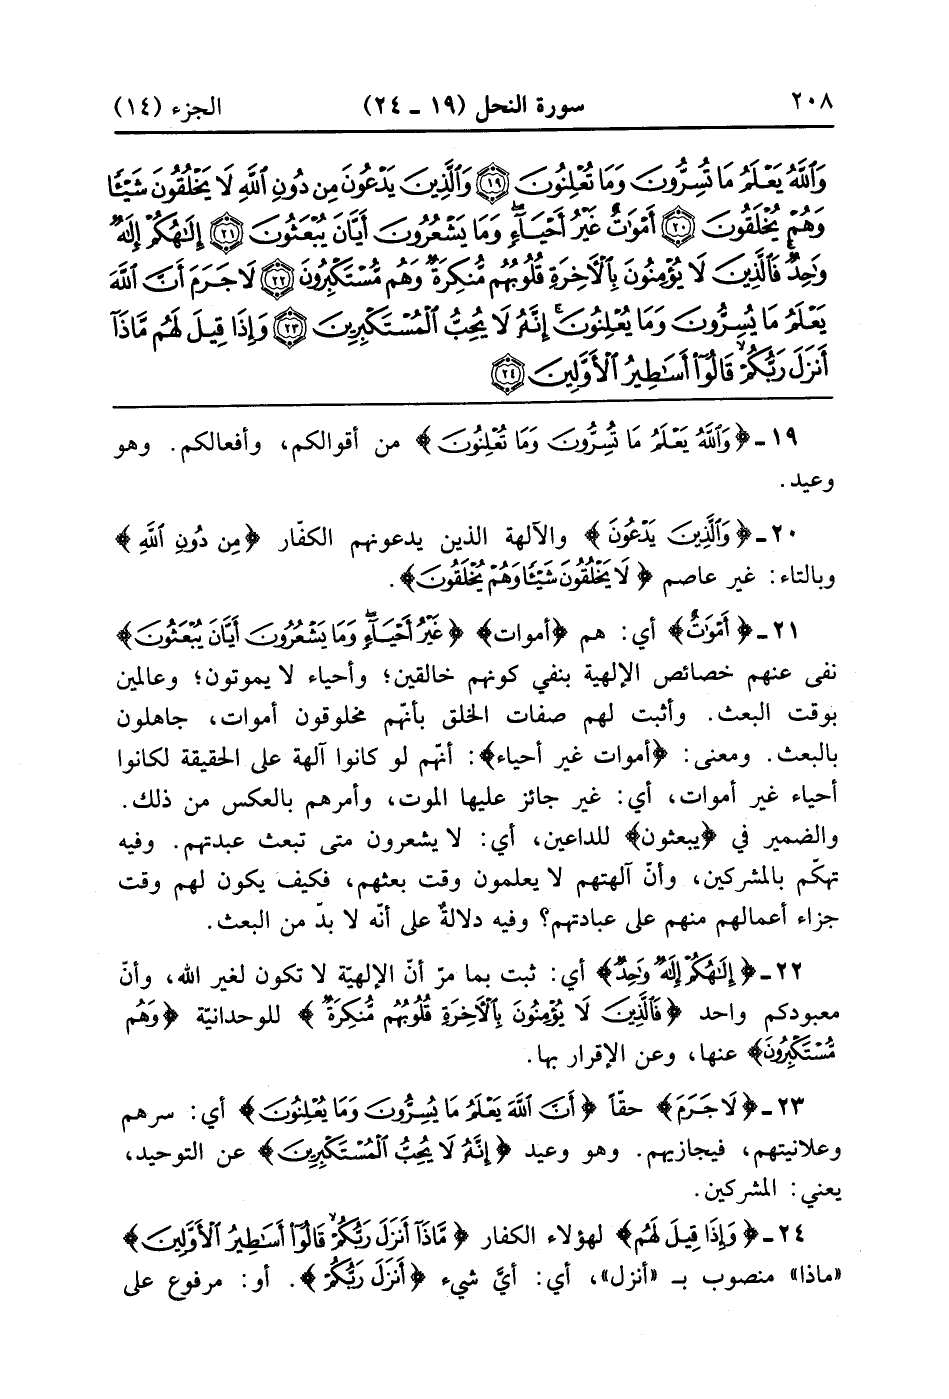 ٢٠٨ سورة النحل (١٩ - ٢٤) الجزء (١٤)
وَٱللَّهُ يَعْلَمُ مَا تُسِرُّونَ وَمَا تُعْلِنُونَ ١٩ وَٱلَّذِينَ يَدْعُونَ مِن دُونِ ٱللَّهِ لَا يَخْلُقُونَ شَيْـًٔا
وَهُمْ يُخْلَقُونَ ٢٠ أَمْوَٰتٌ غَيْرُ أَحْيَآءٍۖ وَمَا يَشْعُرُونَ أَيَّانَ يُبْعَثُونَ ٢١ إِلَٰهُكُمْ إِلَٰهٌ
وَٰحِدٌۚ فَٱلَّذِينَ لَا يُؤْمِنُونَ بِٱلْآخِرَةِ قُلُوبُهُم مُّنكِرَةٌ وَهُم مُّسْتَكْبِرُونَ ٢٢ لَا جَرَمَ أَنَّ ٱللَّهَ
يَعْلَمُ مَا يُسِرُّونَ وَمَا يُعْلِنُونَۚ إِنَّهُۥ لَا يُحِبُّ ٱلْمُسْتَكْبِرِينَ ٢٣ وَإِذَا قِيلَ لَهُم مَّاذَآ
أَنزَلَ رَبُّكُمْۙ قَالُوٓا۟ أَسَٰطِيرُ ٱلْأَوَّلِينَ ٢٤
١٩ - ﴿وَٱللَّهُ يَعْلَمُ مَا تُسِرُّونَ وَمَا تُعْلِنُونَ﴾ من أقوالكم، وأفعالكم. وهو
وعيد.
٢٠ - ﴿وَٱلَّذِينَ يَدْعُونَ﴾ والآلهة الذين يدعونهم الكفّار ﴿مِن دُونِ ٱللَّهِ﴾
وبالتاء: غير عاصم ﴿لَا يَخْلُقُونَ شَيْـًٔا وَهُمْ يُخْلَقُونَ﴾.
٢١ - ﴿أَمْوَٰتٌ﴾ أي: هم ﴿أموات﴾ ﴿غَيْرُ أَحْيَآءٍۖ وَمَا يَشْعُرُونَ أَيَّانَ يُبْعَثُونَ﴾
نفى عنهم خصائص الإلهية بنفي كونهم خالقين؛ وأحياء لا يموتون؛ وعالمين
بوقت البعث. وأثبت لهم صفات الخلق بأنّهم مخلوقون أموات، جاهلون
بالبعث. ومعنى: ﴿أموات غير أحياء﴾: أنّهم لو كانوا آلهة على الحقيقة لكانوا
أحياء غير أموات، أي: غير جائز عليها الموت، وأمرهم بالعكس من ذلك.
والضمير في ﴿يبعثون﴾ للداعين، أي: لا يشعرون متى تبعث عبدتهم. وفيه
تهكّم بالمشركين، وأنّ آلهتهم لا يعلمون وقت بعثهم، فكيف يكون لهم وقت
جزاء أعمالهم منهم على عبادتهم؟ وفيه دلالةٌ على أنّه لا بدّ من البعث.
٢٢ - ﴿إِلَٰهُكُمْ إِلَٰهٌ وَٰحِدٌ﴾ أي: ثبت بما مرّ أنّ الإلهيّة لا تكون لغير الله، وأنّ
معبودكم واحد ﴿فَٱلَّذِينَ لَا يُؤْمِنُونَ بِٱلْآخِرَةِ قُلُوبُهُم مُّنكِرَةٌ﴾ للوحدانيّة ﴿وَهُم
مُّسْتَكْبِرُونَ﴾ عنها، وعن الإقرار بها.
٢٣ - ﴿لَا جَرَمَ﴾ حقّاً ﴿أَنَّ ٱللَّهَ يَعْلَمُ مَا يُسِرُّونَ وَمَا يُعْلِنُونَ﴾ أي: سرهم
وعلانيتهم، فيجازيهم. وهو وعيد ﴿إِنَّهُۥ لَا يُحِبُّ ٱلْمُسْتَكْبِرِينَ﴾ عن التوحيد،
يعني: المشركين.
٢٤ - ﴿وَإِذَا قِيلَ لَهُم﴾ لهؤلاء الكفار ﴿مَّاذَآ أَنزَلَ رَبُّكُمْۙ قَالُوٓا۟ أَسَٰطِيرُ ٱلْأَوَّلِينَ﴾
«ماذا» منصوب بـ «أنزل»، أي: أيَّ شيء ﴿أَنزَلَ رَبُّكُمْ﴾. أو: مرفوع على